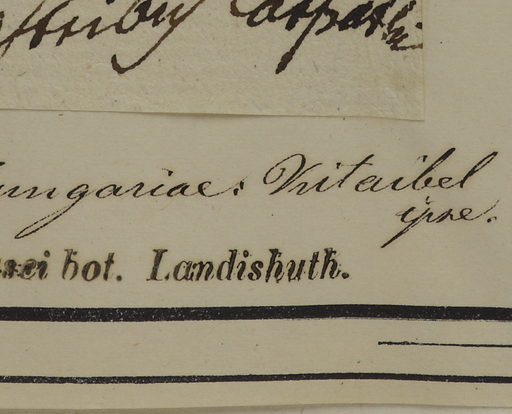 Carpath
ungariae: Kitaibel
ipse.
sei bot. Landishuth.